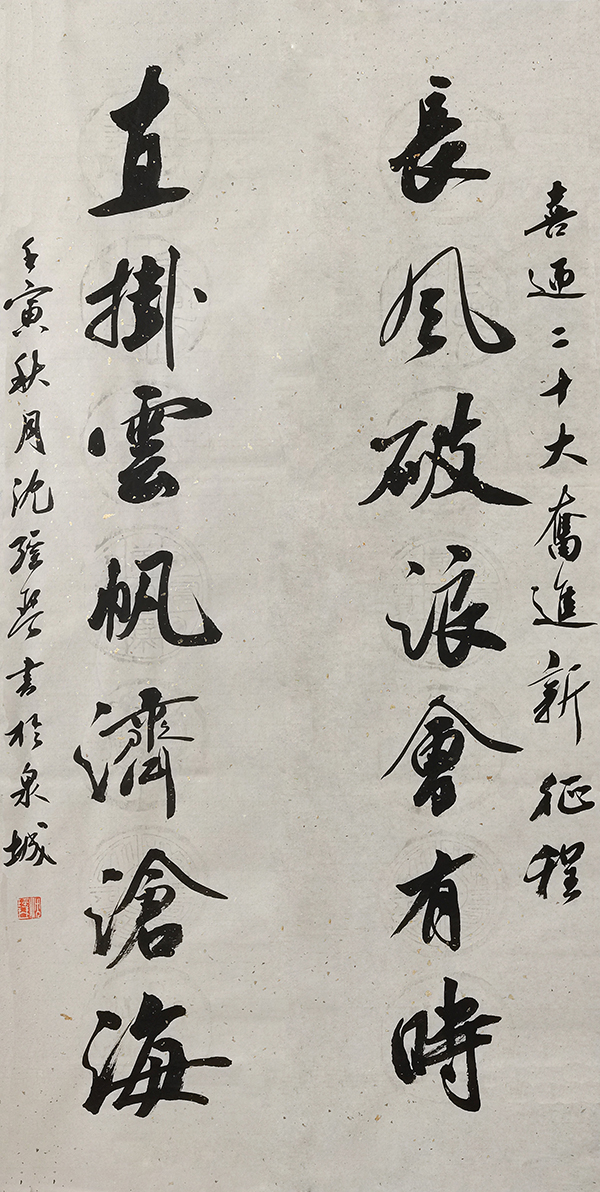 喜迎二十大奮進新征程
長風破浪會有時
直掛雲帆濟滄海
壬寅秋月沈 琴書於泉城